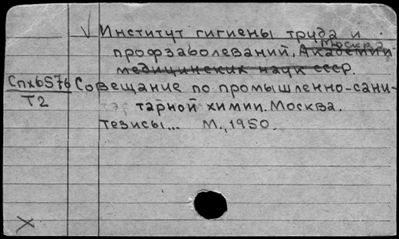 √ Институт гигиены труда и
профзаболеваний, Москва. Академии
медицинских наук СССР.
Спхб576 Совещание по промышленно-сани-
Т2 тарной химии. Москва.
Тезисы... М., 1950.
X